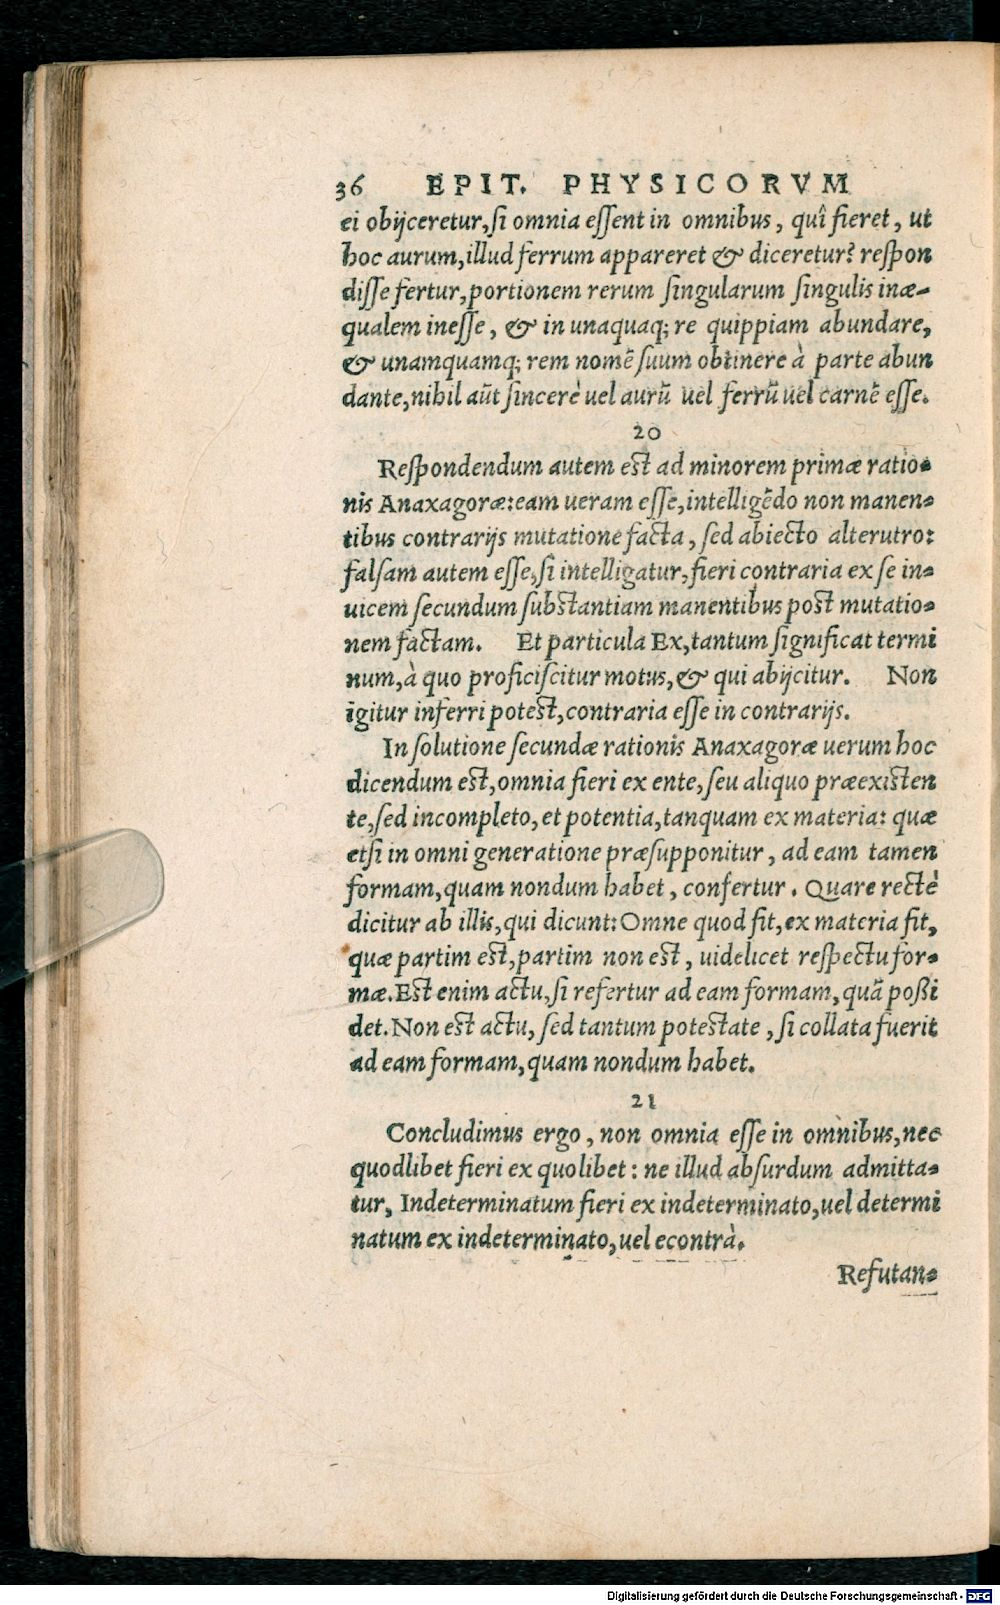 36 EPIT. PHYSICORVM
ei obijceretur, si omnia essent in omnibus, quî fieret, ut
hoc aurum, illud ferrum appareret & diceretur? respon
disse fertur, portionem rerum singularum singulis inæ-
qualem inesse, & in unaquaq; re quippiam abundare,
& unamquamq; rem nomẽ suum obtinere à parte abun
dante, nihil aũt sincerè uel aurũ uel ferrũ uel carnẽ esse.
20
Respondendum autem est ad minorem primæ ratio-
nis Anaxagoræ: eam ueram esse, intelligẽdo non manen-
tibus contrarijs mutatione facta, sed abiecto alterutro:
falsam autem esse, si intelligatur, fieri contraria ex se in-
uicem secundum substantiam manentibus post mutatio-
nem factam. Et particula Ex, tantum significat termi
num, à quo proficiscitur motus, & qui abijcitur. Non
igitur inferri potest, contraria esse in contrarijs.
In solutione secundæ rationis Anaxagoræ uerum hoc
dicendum est, omnia fieri ex ente, seu aliquo præexisten
te, sed incompleto, et potentia, tanquam ex materia: quæ
etsi in omni generatione præsupponitur, ad eam tamen
formam, quam nondum habet, confertur. Quare rectè
dicitur ab illis, qui dicunt: Omne quod fit, ex materia fit,
quæ partim est, partim non est, uidelicet respectu for-
mæ. Est enim actu, si refertur ad eam formam, quã poßi
det. Non est actu, sed tantum potestate, si collata fuerit
ad eam formam, quam nondum habet.
21
Concludimus ergo, non omnia esse in omnibus, nec
quodlibet fieri ex quolibet: ne illud absurdum admitta-
tur, Indeterminatum fieri ex indeterminato, uel determi
natum ex indeterminato, uel econtrà.
Refutan-
Digitalisierung gefördert durch die Deutsche Forschungsgemeinschaft - DFG